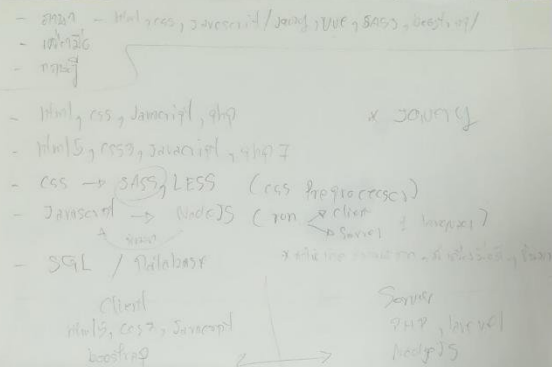 - ภาษา - html, css, Javascript / Jquery, vue, SASS, boostrap /
- เครื่องมือ
- ทฤษฎี
- html, css, Javascript, php
* Jquery
- html5, css3, Javascript, php 7
- css → SASS, LESS (css Preprocessor)
- Javascript → NodeJS (run Client
Server
- SQL / Database
Client
Server
html5, css3, Javascript
PHP, laravel
boostrap
NodeJS